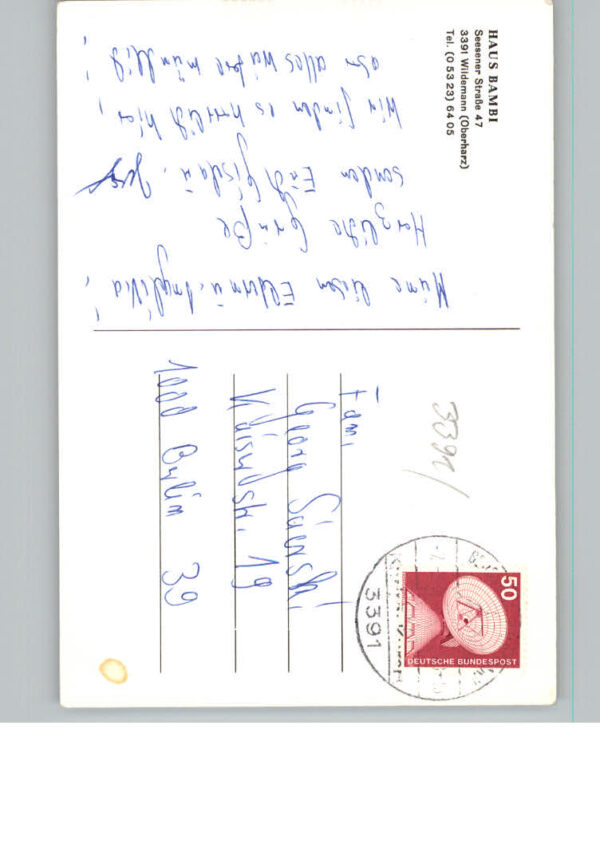 HAUS BAMBI
Seesener Straße 47
3391 Wildemann (Oberharz)
Tel. (0 53 23) 64 05
Meine lieben Eltern u.
Herzliche Grüße
senden Euch Gisela u.
Wir finden es herrlich hier,
aber alles weitere mündlich
3391
50
DEUTSCHE BUNDESPOST
3391
Fam.
Georg
str. 19
1000 Berlin 39